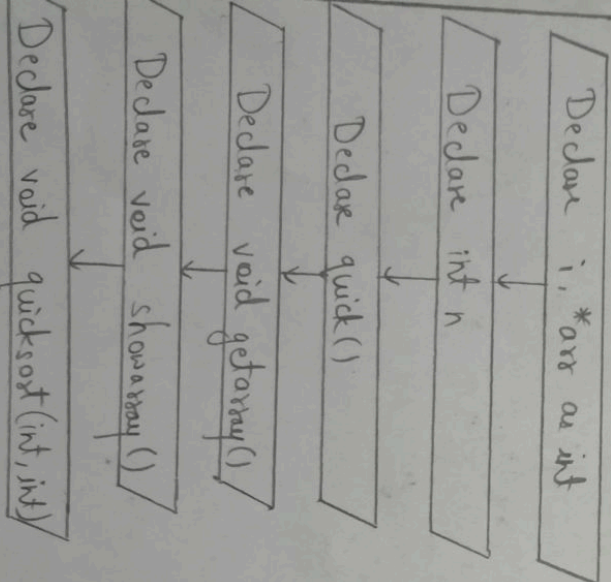 Declare i, *arr as int
Declare int n
Declare quick()
Declare void getarray()
Declare void showarray()
Declare void quicksort(int, int)